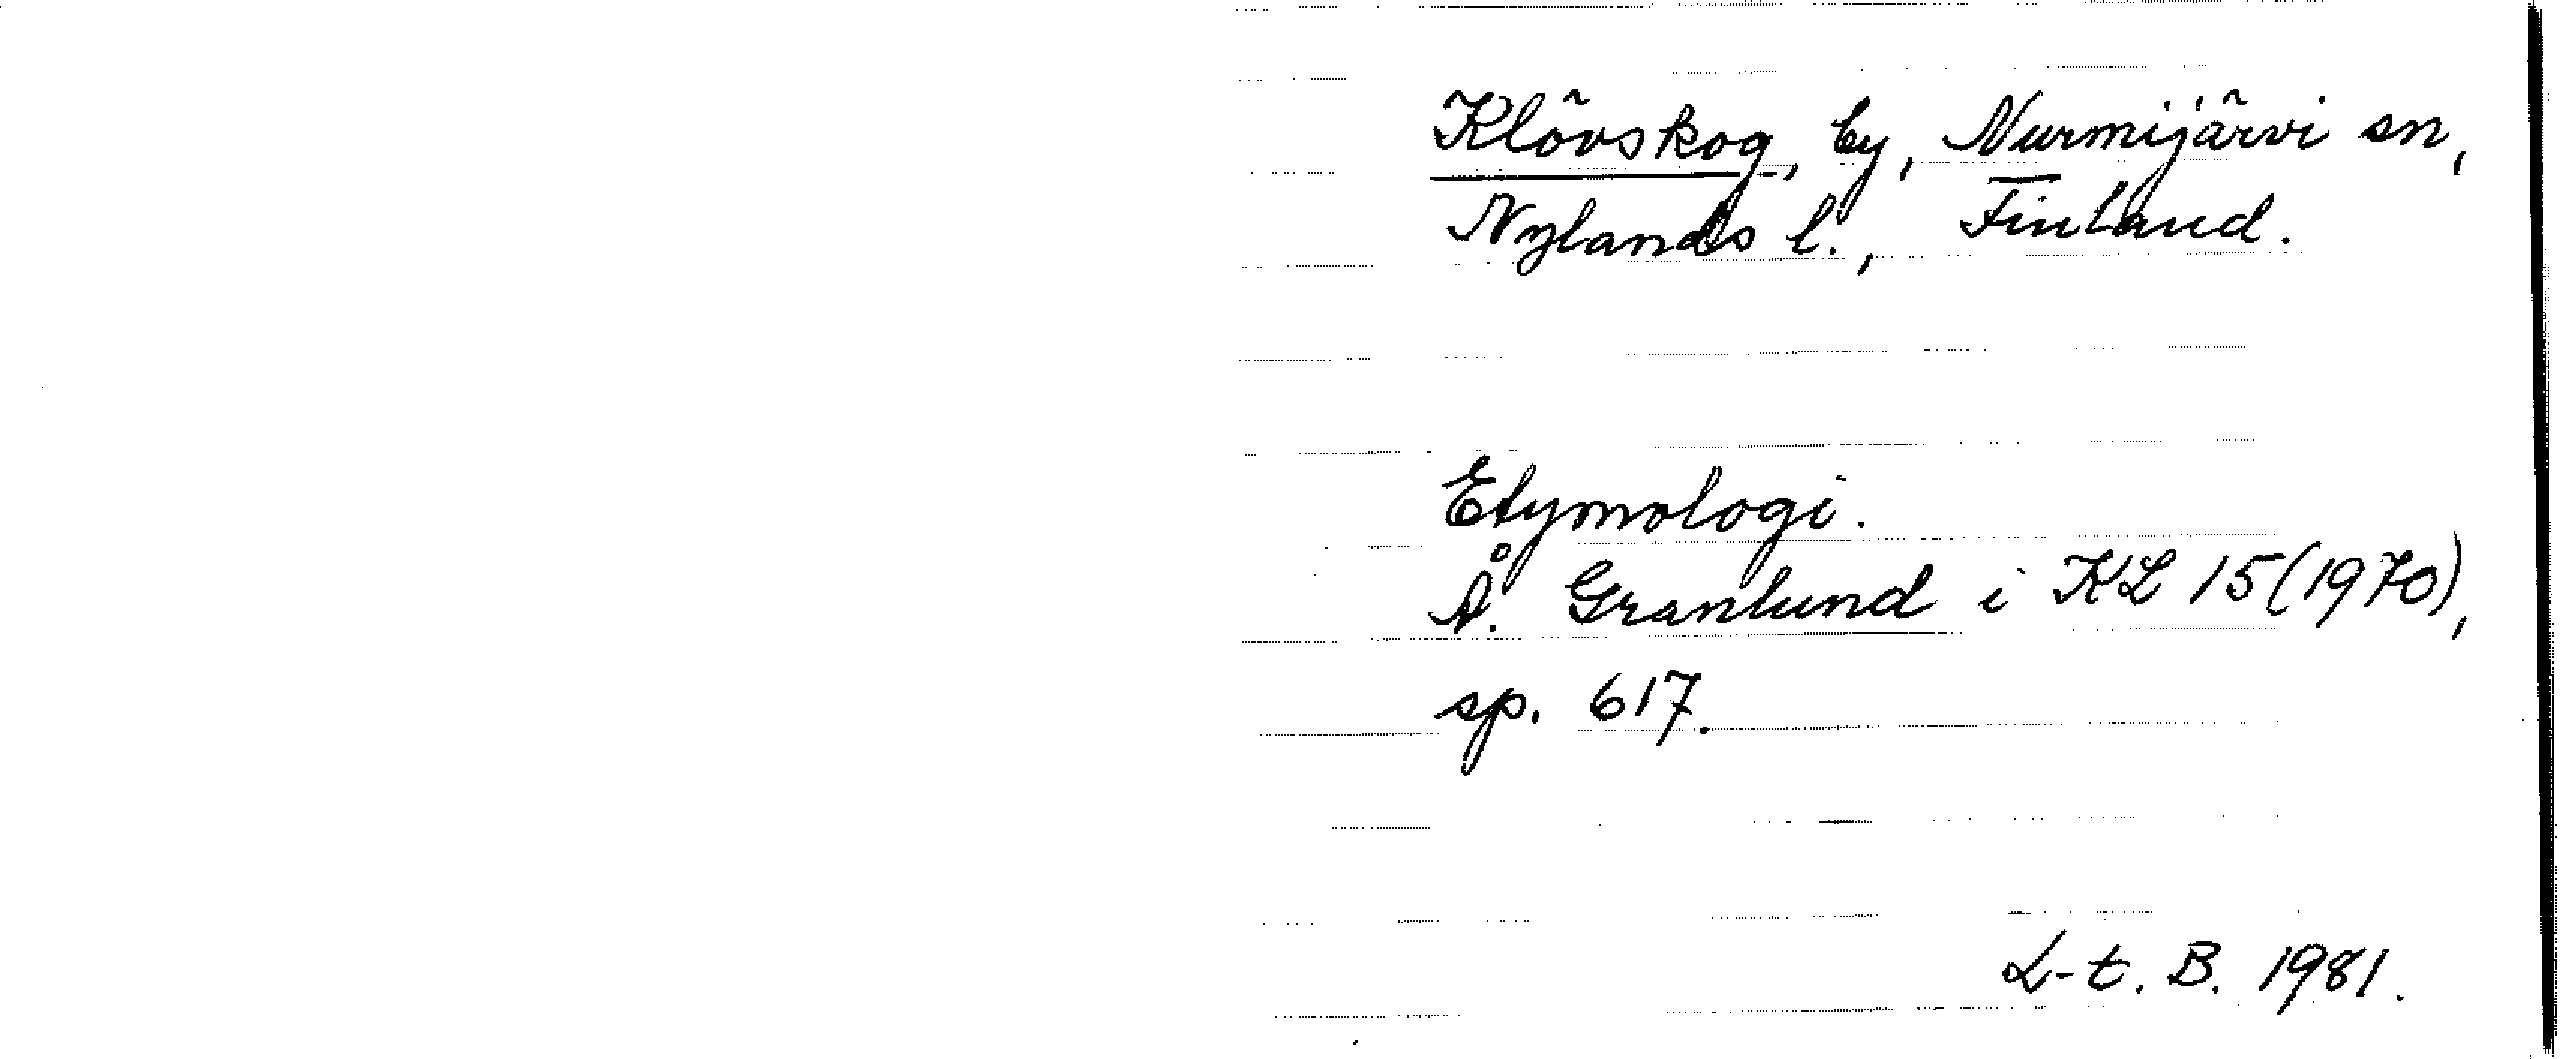 Klövskog, by, Nurmijärvi sn,
Nylands l., Finland.
Etymologi.
Å. Granlund i KL 15 (1970),
sp. 617.
L-t. B. 1981.